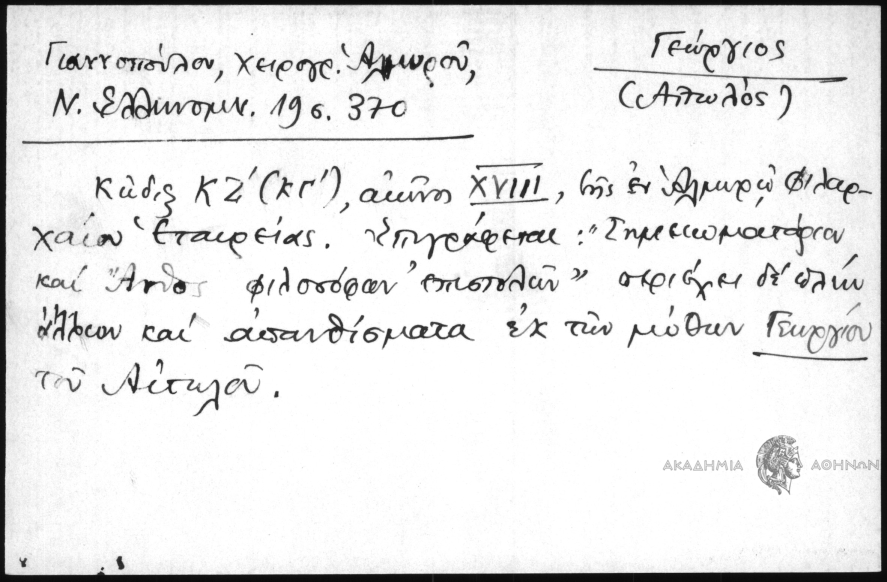 Γεώργιος
(Αἰτωλός)
Γιαννοπούλου, χειρογρ. Ἁλμυροῦ,
Ν. Ἑλληνομν. 19 σ. 370
Κῶδιξ ΚΖ΄ (κγ΄), αἰῶνος XVIII, τῆς ἐν Ἁλμυρῷ Φιλαρ-
χαίου Ἑταιρείας. Ἐπιγράφεται: "Σημειωματάριον
καί Ἄνθος φιλοσόφων ἐπιστολῶν" περιέχει δέ πλήν
ἄλλων καί ἀπανθίσματα ἐκ τῶν μύθων Γεωργίου
τοῦ Αἰτωλοῦ.
ΑΚΑΔΗΜΙΑ ΑΘΗΝΩΝ